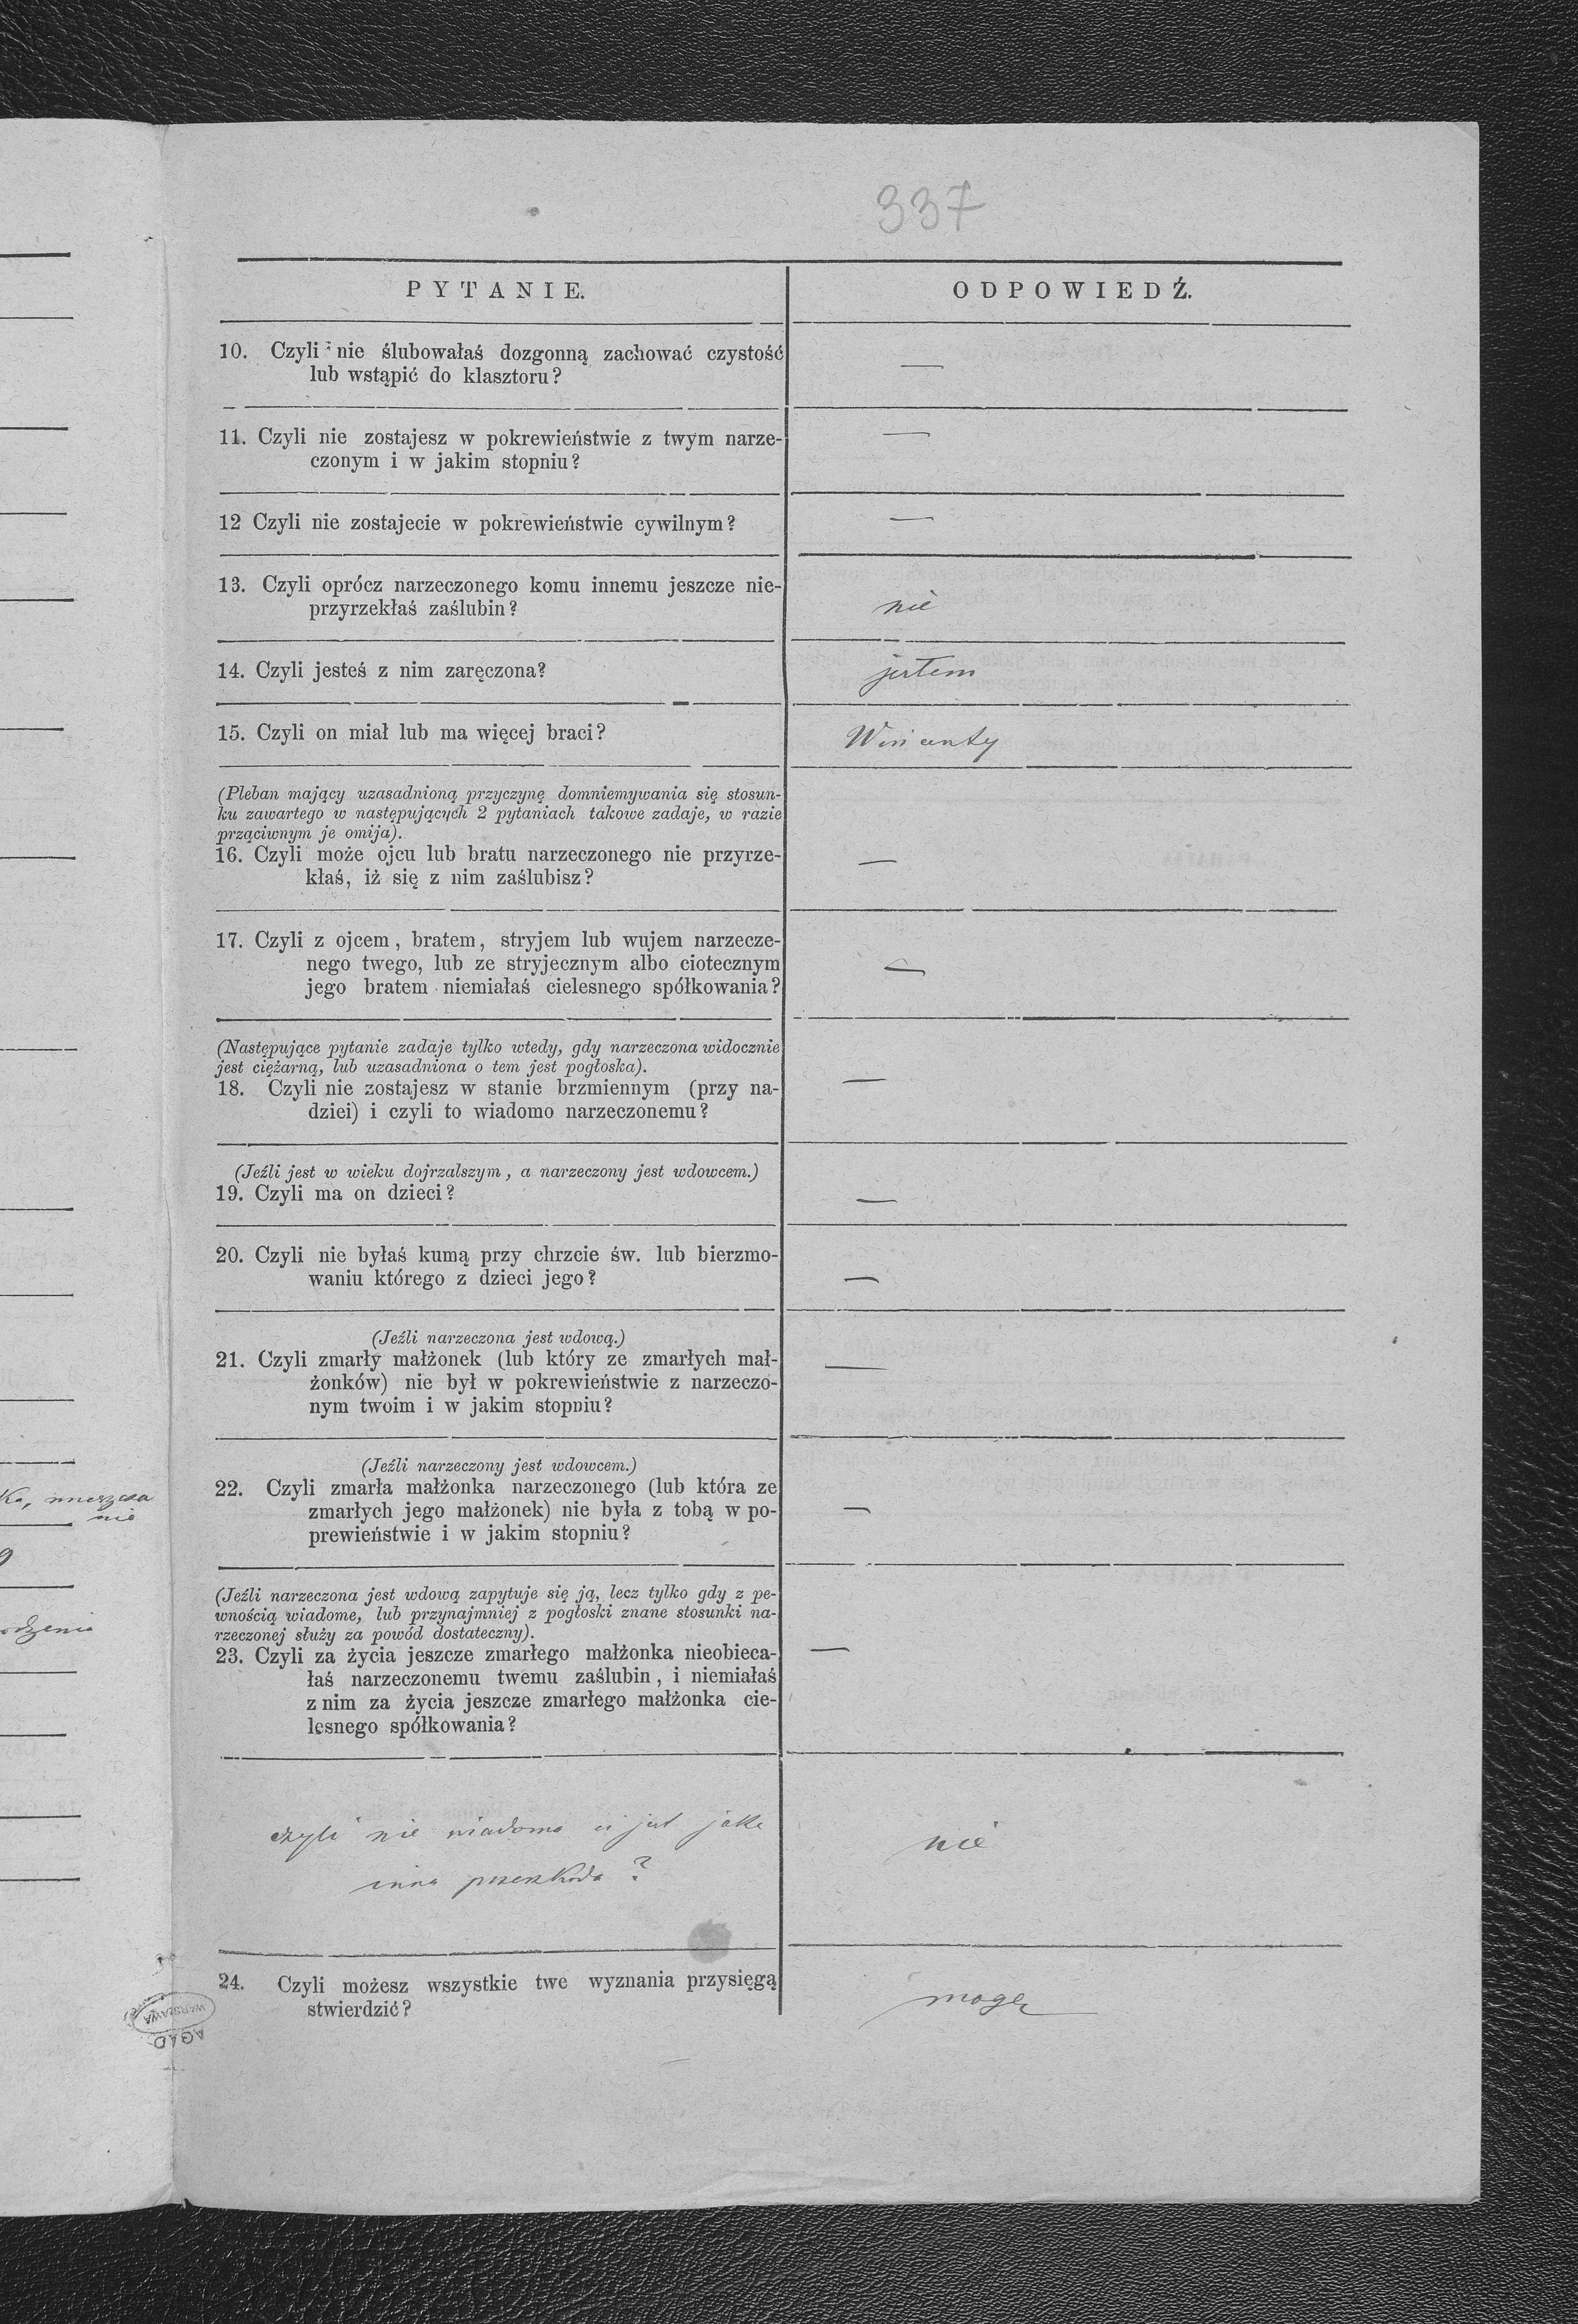 337
PYTANIE.
ODPOWIEDŹ.
10. Czyli nie ślubowałaś dozgonną zachować czystość
lub wstąpić do klasztoru?
—
11. Czyli nie zostajesz w pokrewieństwie z twym narze-
czonym i w jakim stopniu?
—
12 Czyli nie zostajecie w pokrewieństwie cywilnym?
—
13. Czyli oprócz narzeczonego komu innemu jeszcze nie-
przyrzekłaś zaślubin?
nie
14. Czyli jesteś z nim zaręczona?
jestem
15. Czyli on miał lub ma więcej braci?
Wincenty
(Pleban mający uzasadnioną przyczynę domniemywania się stosun-
ku zawartego w następujących 2 pytaniach takowe zadaje, w razie
prząciwnym je omija).
16. Czyli może ojcu lub bratu narzeczonego nie przyrze-
kłaś, iż się z nim zaślubisz?
—
17. Czyli z ojcem, bratem, stryjem lub wujem narzecze-
nego twego, lub ze stryjecznym albo ciotecznym
jego bratem niemiałaś cielesnego spółkowania?
—
(Następujące pytanie zadaje tylko wtedy, gdy narzeczona widocznie
jest ciężarną, lub uzasadniona o tem jest pogłoska).
18. Czyli nie zostajesz w stanie brzmiennym (przy na-
dziei) i czyli to wiadomo narzeczonemu?
—
(Jeźli jest w wieku dojrzalszym, a narzeczony jest wdowcem.)
19. Czyli ma on dzieci?
—
20. Czyli nie byłaś kumą przy chrzcie św. lub bierzmo-
waniu którego z dzieci jego?
—
(Jeźli narzeczona jest wdową.)
21. Czyli zmarły małżonek (lub który ze zmarłych mał-
żonków) nie był w pokrewieństwie z narzeczo-
nym twoim i w jakim stopniu?
—
(Jeźli narzeczony jest wdowcem.)
22. Czyli zmarła małżonka narzeczonego (lub która ze
zmarłych jego małżonek) nie była z tobą w po-
prewieństwie i w jakim stopniu?
—
(Jeźli narzeczona jest wdową zapytuje się ją, lecz tylko gdy z pe-
wnością wiadome, lub przynajmniej z pogłoski znane stosunki na-
rzeczonej służy za powód dostateczny).
23. Czyli za życia jeszcze zmarłego małżonka nieobieca-
łaś narzeczonemu twemu zaślubin, i niemiałaś
z nim za życia jeszcze zmarłego małżonka cie-
lesnego spółkowania?
—
czyli nie wiadoma ci jest jaka
inna przeszkoda?
nie
24. Czyli możesz wszystkie twe wyznania przysięgą
stwierdzić?
mogę
WARSZAWA
AGAD